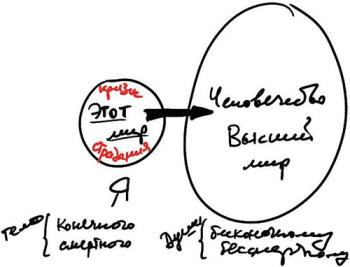 кризис
этот
мир
страдания
Человечество
Высший
мир
Я
тело { конечного
смертного
Душу { бесконечному
бессмертному